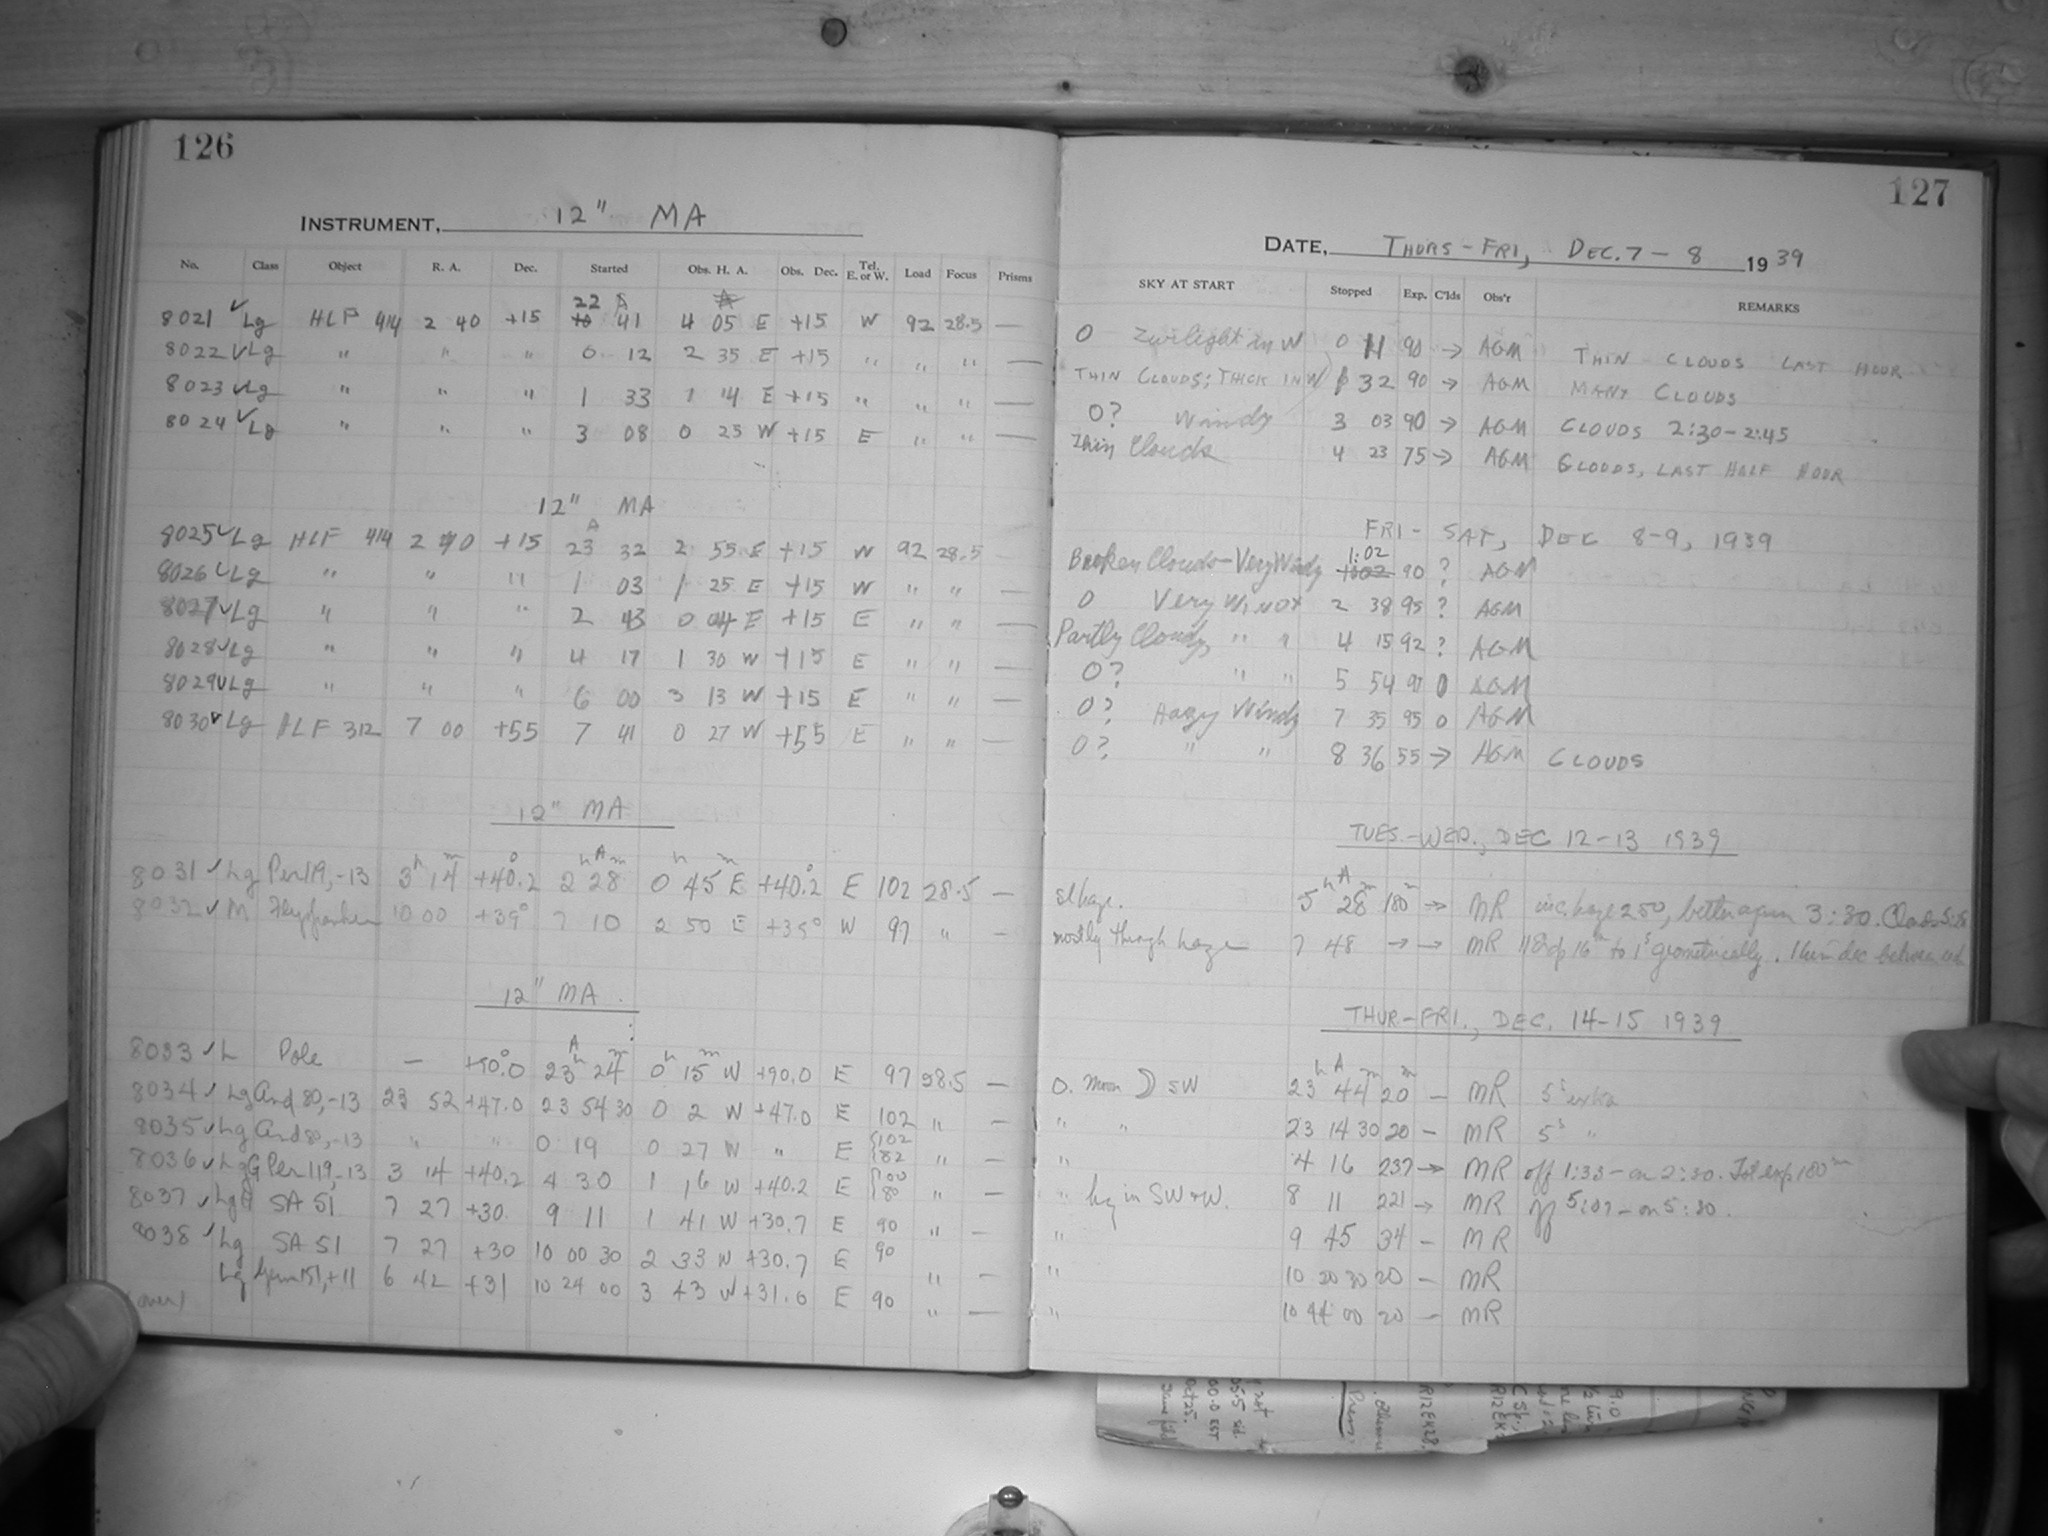 126
INSTRUMENT, 12" MA
No. Class Object R. A. Dec. Started Obs. H. A. Obs. Dec. Tel. E. or W. Load Focus Prisms
8021 ✓ Lg HLF 414 2 40 +15 22 41 4 05 E +15 W 92 28.5 —
8022 ✓ Lg " " " 0 12 2 35 E +15 " " " —
8023 ✓ Lg " " " 1 33 1 14 E +15 " " " —
8024 ✓ Lg " " " 3 08 0 25 W +15 E " " —
12" MA
8025 ✓ Lg HLF 414 2 40 +15 23 32 2 55 E +15 W 92 28.5 —
8026 ✓ Lg " " " 1 03 1 25 E +15 W " " —
8027 ✓ Lg " " " 2 43 0 04 E +15 E " " —
8028 ✓ Lg " " " 4 17 1 30 W +15 E " " —
8029 ✓ Lg " " " 6 00 3 13 W +15 E " " —
8030 ✓ Lg HLF 312 7 00 +55 7 41 0 27 W +55 E " " —
12" MA
8031 ✓ Lg Per 119, -13 3h 14m +40.2 2 28 0 45 E +40.2 E 102 28.5 —
8032 ✓ M 10 00 +39° 7 10 2 50 E +35° W 97 " —
12" MA
8033 ✓ L Pole — +90.0 23h 24m 0h 15m W +90.0 E 97 28.5 —
8034 ✓ Lg And 80, -13 23 52 +47.0 23 54 30 0 2 W +47.0 E 102 " —
8035 ✓ Lg And 80, -13 " " 0 19 0 27 W " E {102 82 " —
8036 ✓ Lg Per 119, -13 3 14 +40.2 4 30 1 16 W +40.2 E {100 80 " —
8037 ✓ Lg SA 51 7 27 +30. 9 11 1 41 W +30.7 E 90 " —
8038 ✓ Lg SA 51 7 27 +30 10 00 30 2 33 W +30.7 E 90 " —
Lg Gem 151, +11 6 42 +31 10 24 00 3 43 W +31.6 E 90 " —
(over)
127
DATE, THURS - FRI, DEC. 7 - 8 1939
SKY AT START Stopped Exp. C'lds Obs'r REMARKS
0 Twilight in W 0 11 90 → AGM THIN CLOUDS LAST HOUR
THIN CLOUDS; THICK IN W 1 32 90 → AGM MANY CLOUDS
0? Windy 3 03 90 → AGM CLOUDS 2:30-2:45
Thin Clouds 4 23 75 → AGM CLOUDS, LAST HALF HOUR
FRI - SAT, DEC 8-9, 1939
Broken Clouds - Very Windy 1:02 90 ? AGM
0 Very Windy 2 38 95 ? AGM
Partly Cloudy, " " 4 15 92 ? AGM
0? " " 5 54 97 0 AGM
0? Hazy Windy 7 35 95 0 AGM
0? " " 8 36 55 → AGM CLOUDS
TUES.-WED., DEC 12-13 1939
sl haze. 5h 28m 180m → MR inc. haze 2 50, better again 3:30. Clouds
mostly through haze 7 48 → → MR 16m to 1s geometrically. 1 cm dec between
THUR-FRI., DEC. 14-15 1939
0. Moon ) SW 23h 44m 20m — MR 5s extra
" " 23 14 30 20 — MR 5s "
" 4 16 237 → MR off 1:33 - on 2:30. Tot exp 180m
" in SW & W. 8 11 221 → MR off 5:07 - on 5:30.
" 9 45 34 — MR
" 10 20 30 20 — MR
" 10 44 00 20 — MR